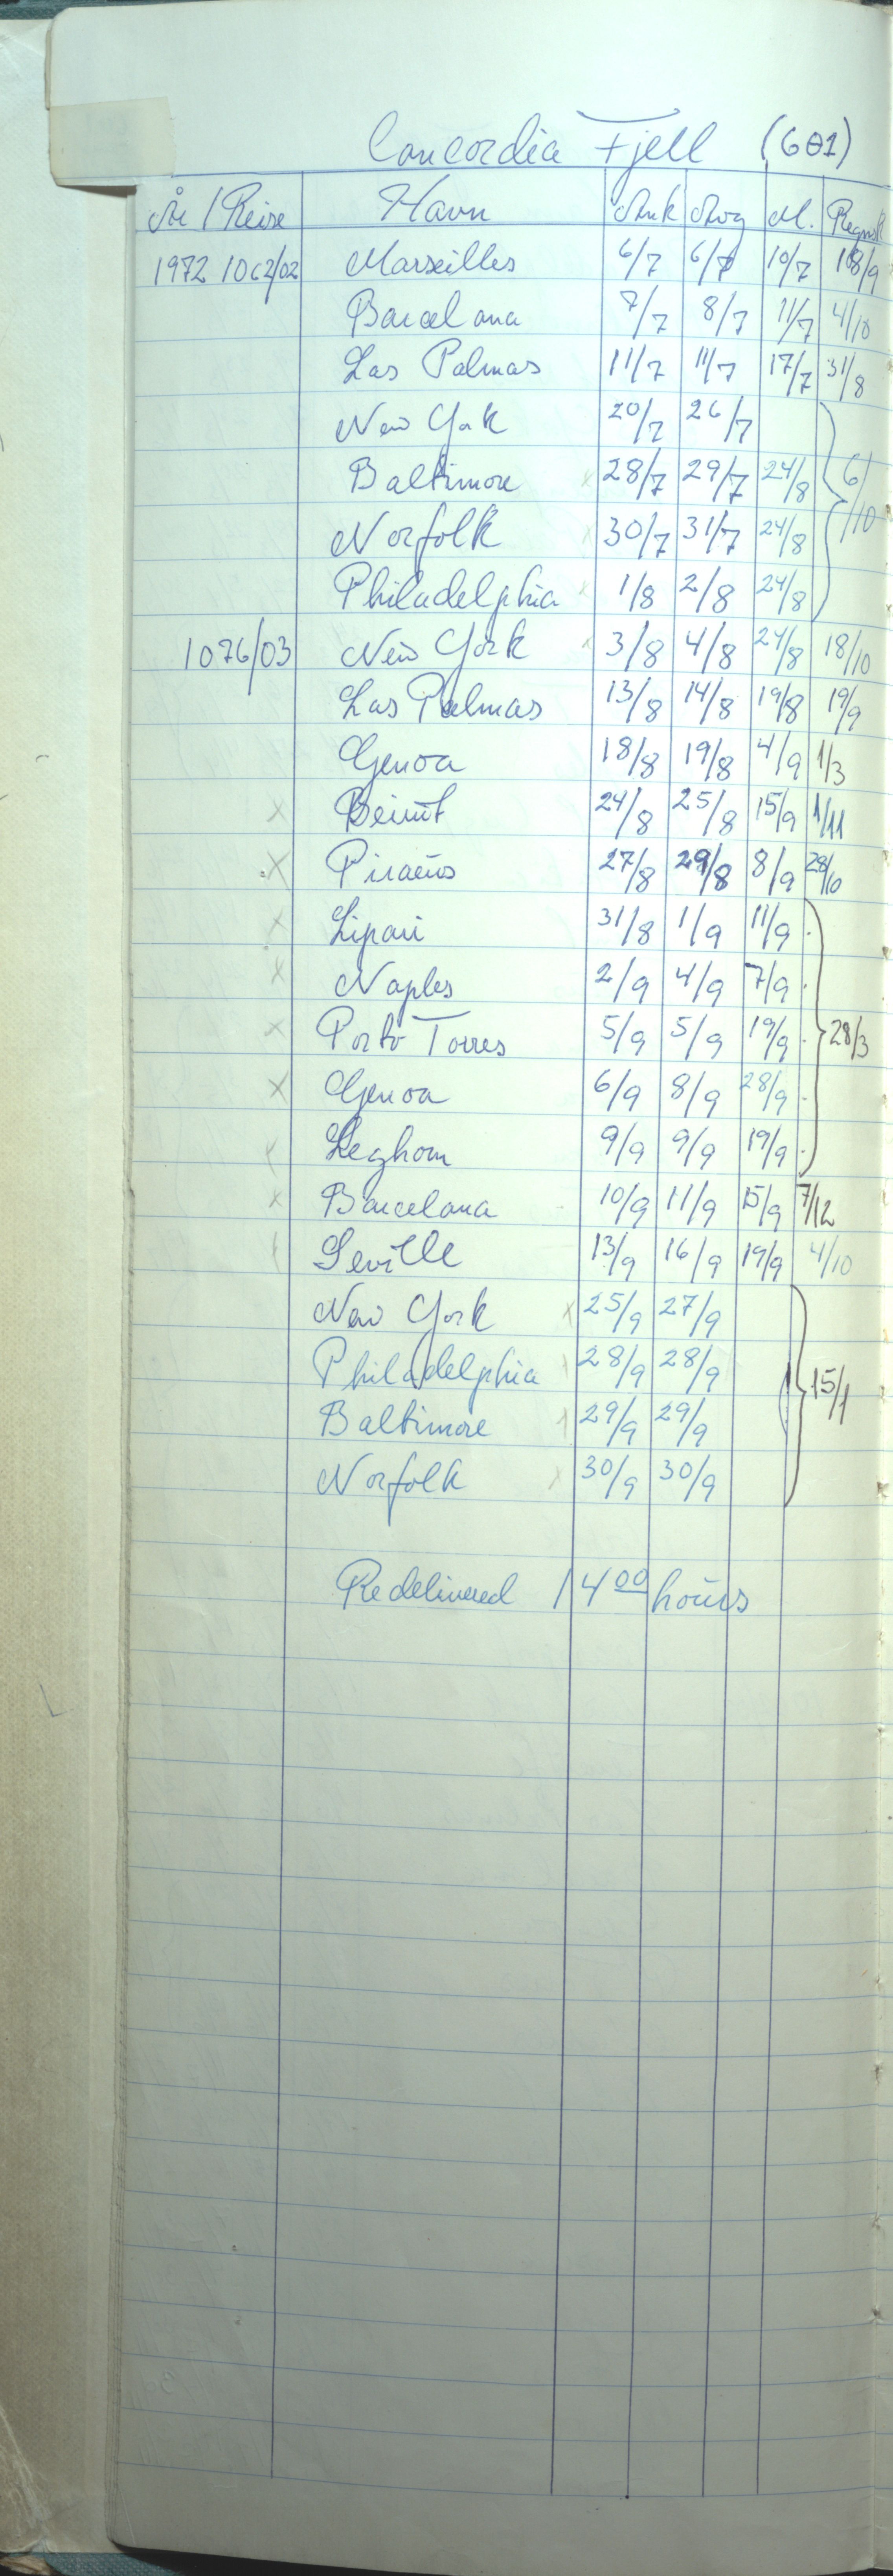 Concordia Fjell (601)
År / Reise Havn Ank Avg M. Regnsk
1972 1062/02 Marseilles 6/7 6/7 10/7 18/9
Barcelona 7/7 8/7 11/7 4/10
Las Palmas 11/7 11/7 17/7 31/8
New York 20/7 26/7
Baltimore x 28/7 29/7 24/8 6/10
Norfolk x 30/7 31/7 24/8
Philadelphia x 1/8 2/8 24/8
1076/03 New York x 3/8 4/8 24/8 18/10
Las Palmas 13/8 14/8 19/8 19/9
Genoa 18/8 19/8 4/9 1/3
x Beirut 24/8 25/8 15/9 1/11
x Piraeus 27/8 29/8 8/9 28/10
x Lipari 31/8 1/9 11/9
x Naples 2/9 4/9 7/9
x Porto Torres 5/9 5/9 19/9 28/3
x Genoa 6/9 8/9 28/9
x Leghorn 9/9 9/9 19/9
x Barcelona 10/9 11/9 15/9 7/12
Seville 13/9 16/9 19/9 4/10
New York x 25/9 27/9
Philadelphia x 28/9 28/9 15/1
Baltimore 29/9 29/9
Norfolk x 30/9 30/9
Redelivered 14 00 hours